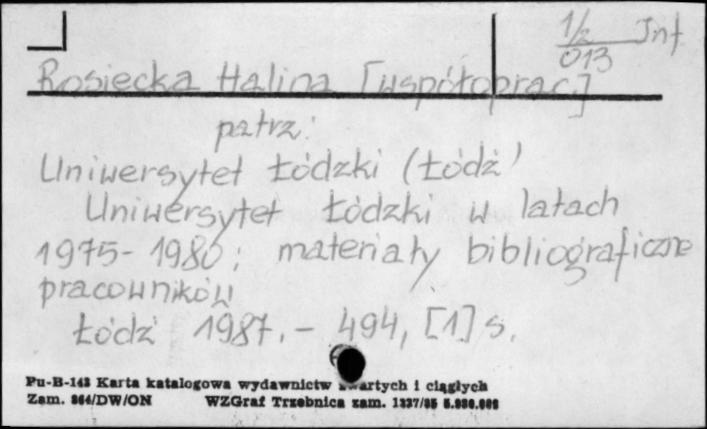 1/2 Inf
013
Rosiecka Halina [współoprac.]
patrz:
Uniwersytet Łódzki (Łódź)
Uniwersytet Łódzki w latach
1975-1980: materiały bibliograficzne
pracowników
Łódź 1987. - 494, [1] s.
Pu-B-143 Karta katalogowa wydawnictw zwartych i ciągłych
Zam. 864/DW/ON WZGraf Trzebnica zam. 1337/85